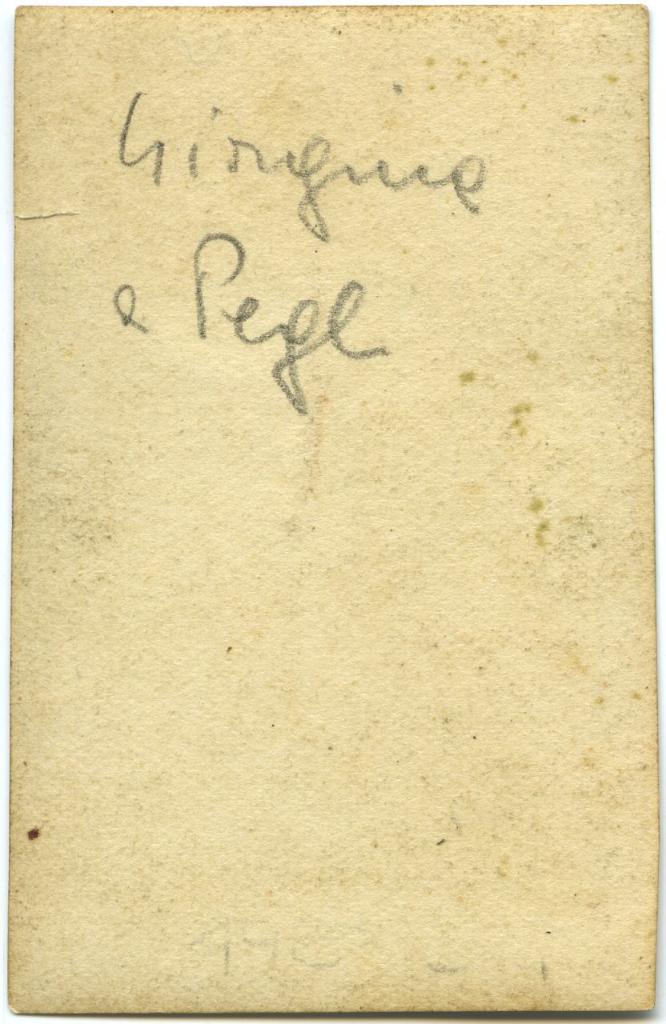 Giorgina
e Pegl